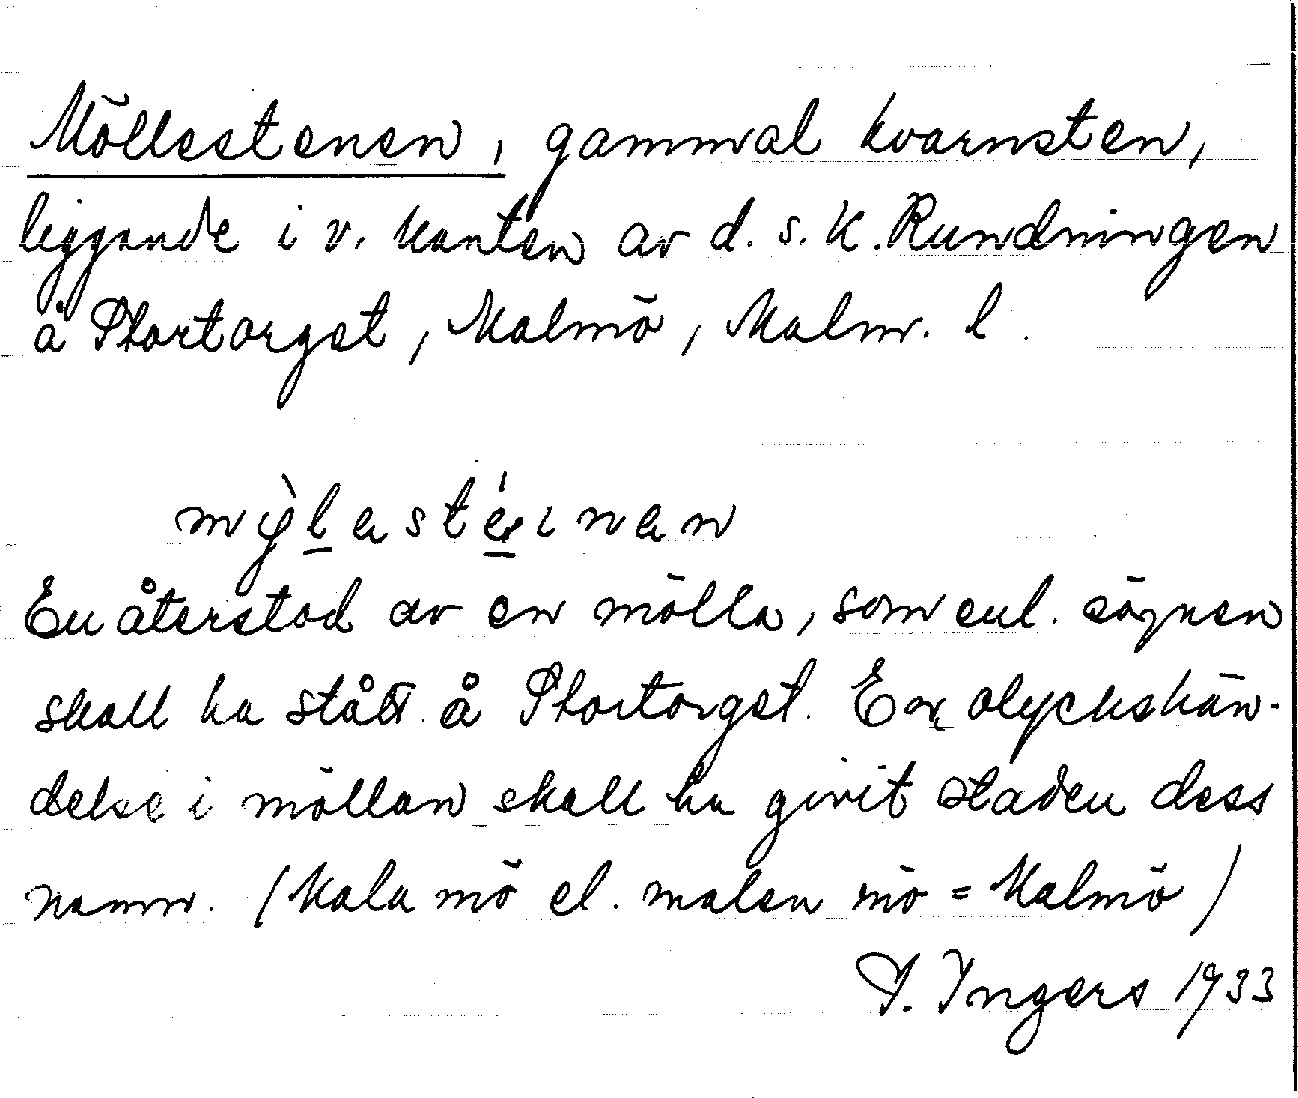 Möllestenen, gammal kvarnsten,
liggande i v. kanten av d. s. k. Rundningen
å Stortorget, Malmö, Malm. l.
mỳlastéinan
En återstod av en mölla, som enl. sägnen
skall ha stått å Stortorget. En olyckshän-
delse i möllan skall ha givit staden dess
namn. (Mala mö el. malen mö = Malmö)
I. Ingers 1933